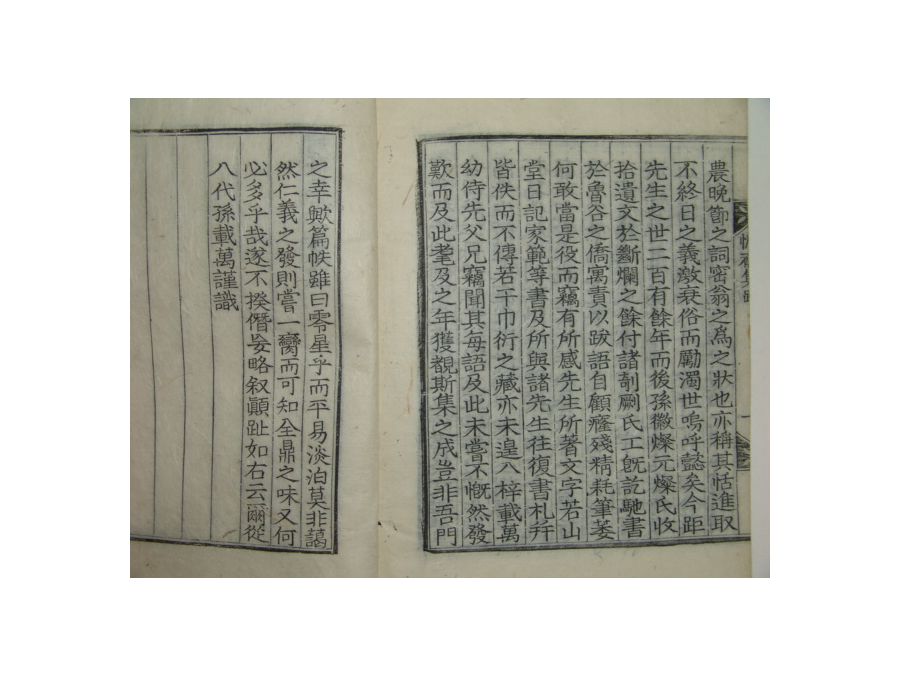 農晩節之詞密翁之為之狀也亦稱其恬進取
不終日之義激衰俗而勵濁世嗚呼懿矣今距
先生之世二百有餘年而後孫徽燦元燦氏收
拾遺文於斷爛之餘付諸剞劂氏工旣訖馳書
於魯谷之僑寓責以跋語自顧癃殘精耗筆萎
何敢當是役而竊有所感先生所著文字若山
堂日記家範等書及所與諸先生往復書札幷
皆佚而不傳若干巾衍之藏亦未遑入梓載萬
幼侍先父兄竊聞其每語及此未嘗不慨然發
歎而及此耄及之年獲覩斯集之成豈非吾門
之幸歟篇帙雖曰零星乎而平易淡泊莫非藹
然仁義之發則嘗一臠而可知全鼎之味又何
必多乎哉遂不揆僭妄略叙顚趾如右云爾從
八代孫載萬謹識